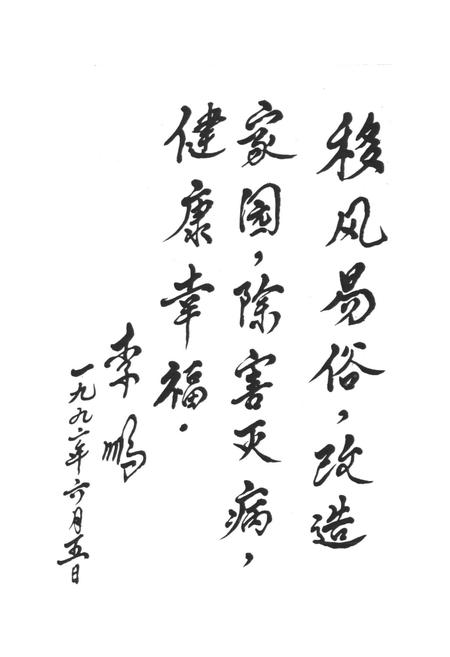 移风易俗，改造
家园，除害灭病，
健康幸福．
李鹏
一九九二年六月五日